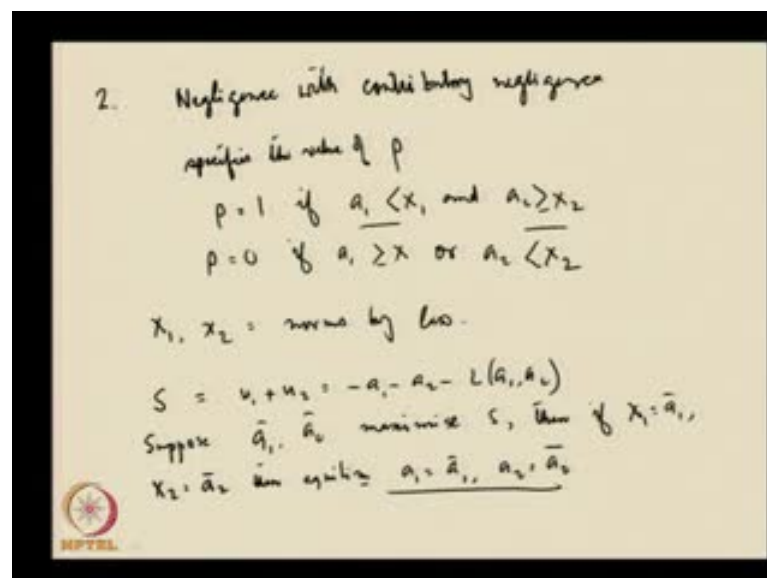 2. Negligence with contributory negligence
specifies the value of ρ
ρ = 1 if a₁ < x₁ and a₂ ≥ x₂
ρ = 0 if a₁ ≥ x or a₂ < x₂
x₁, x₂ = norms by law.
S = u₁ + u₂ = -a₁ - a₂ - L(a₁, a₂)
Suppose ā₁, ā₂ maximise S, then if x₁ = ā₁,
x₂ = ā₂ then a₁ = ā₁, a₂ = ā₂
NPTEL